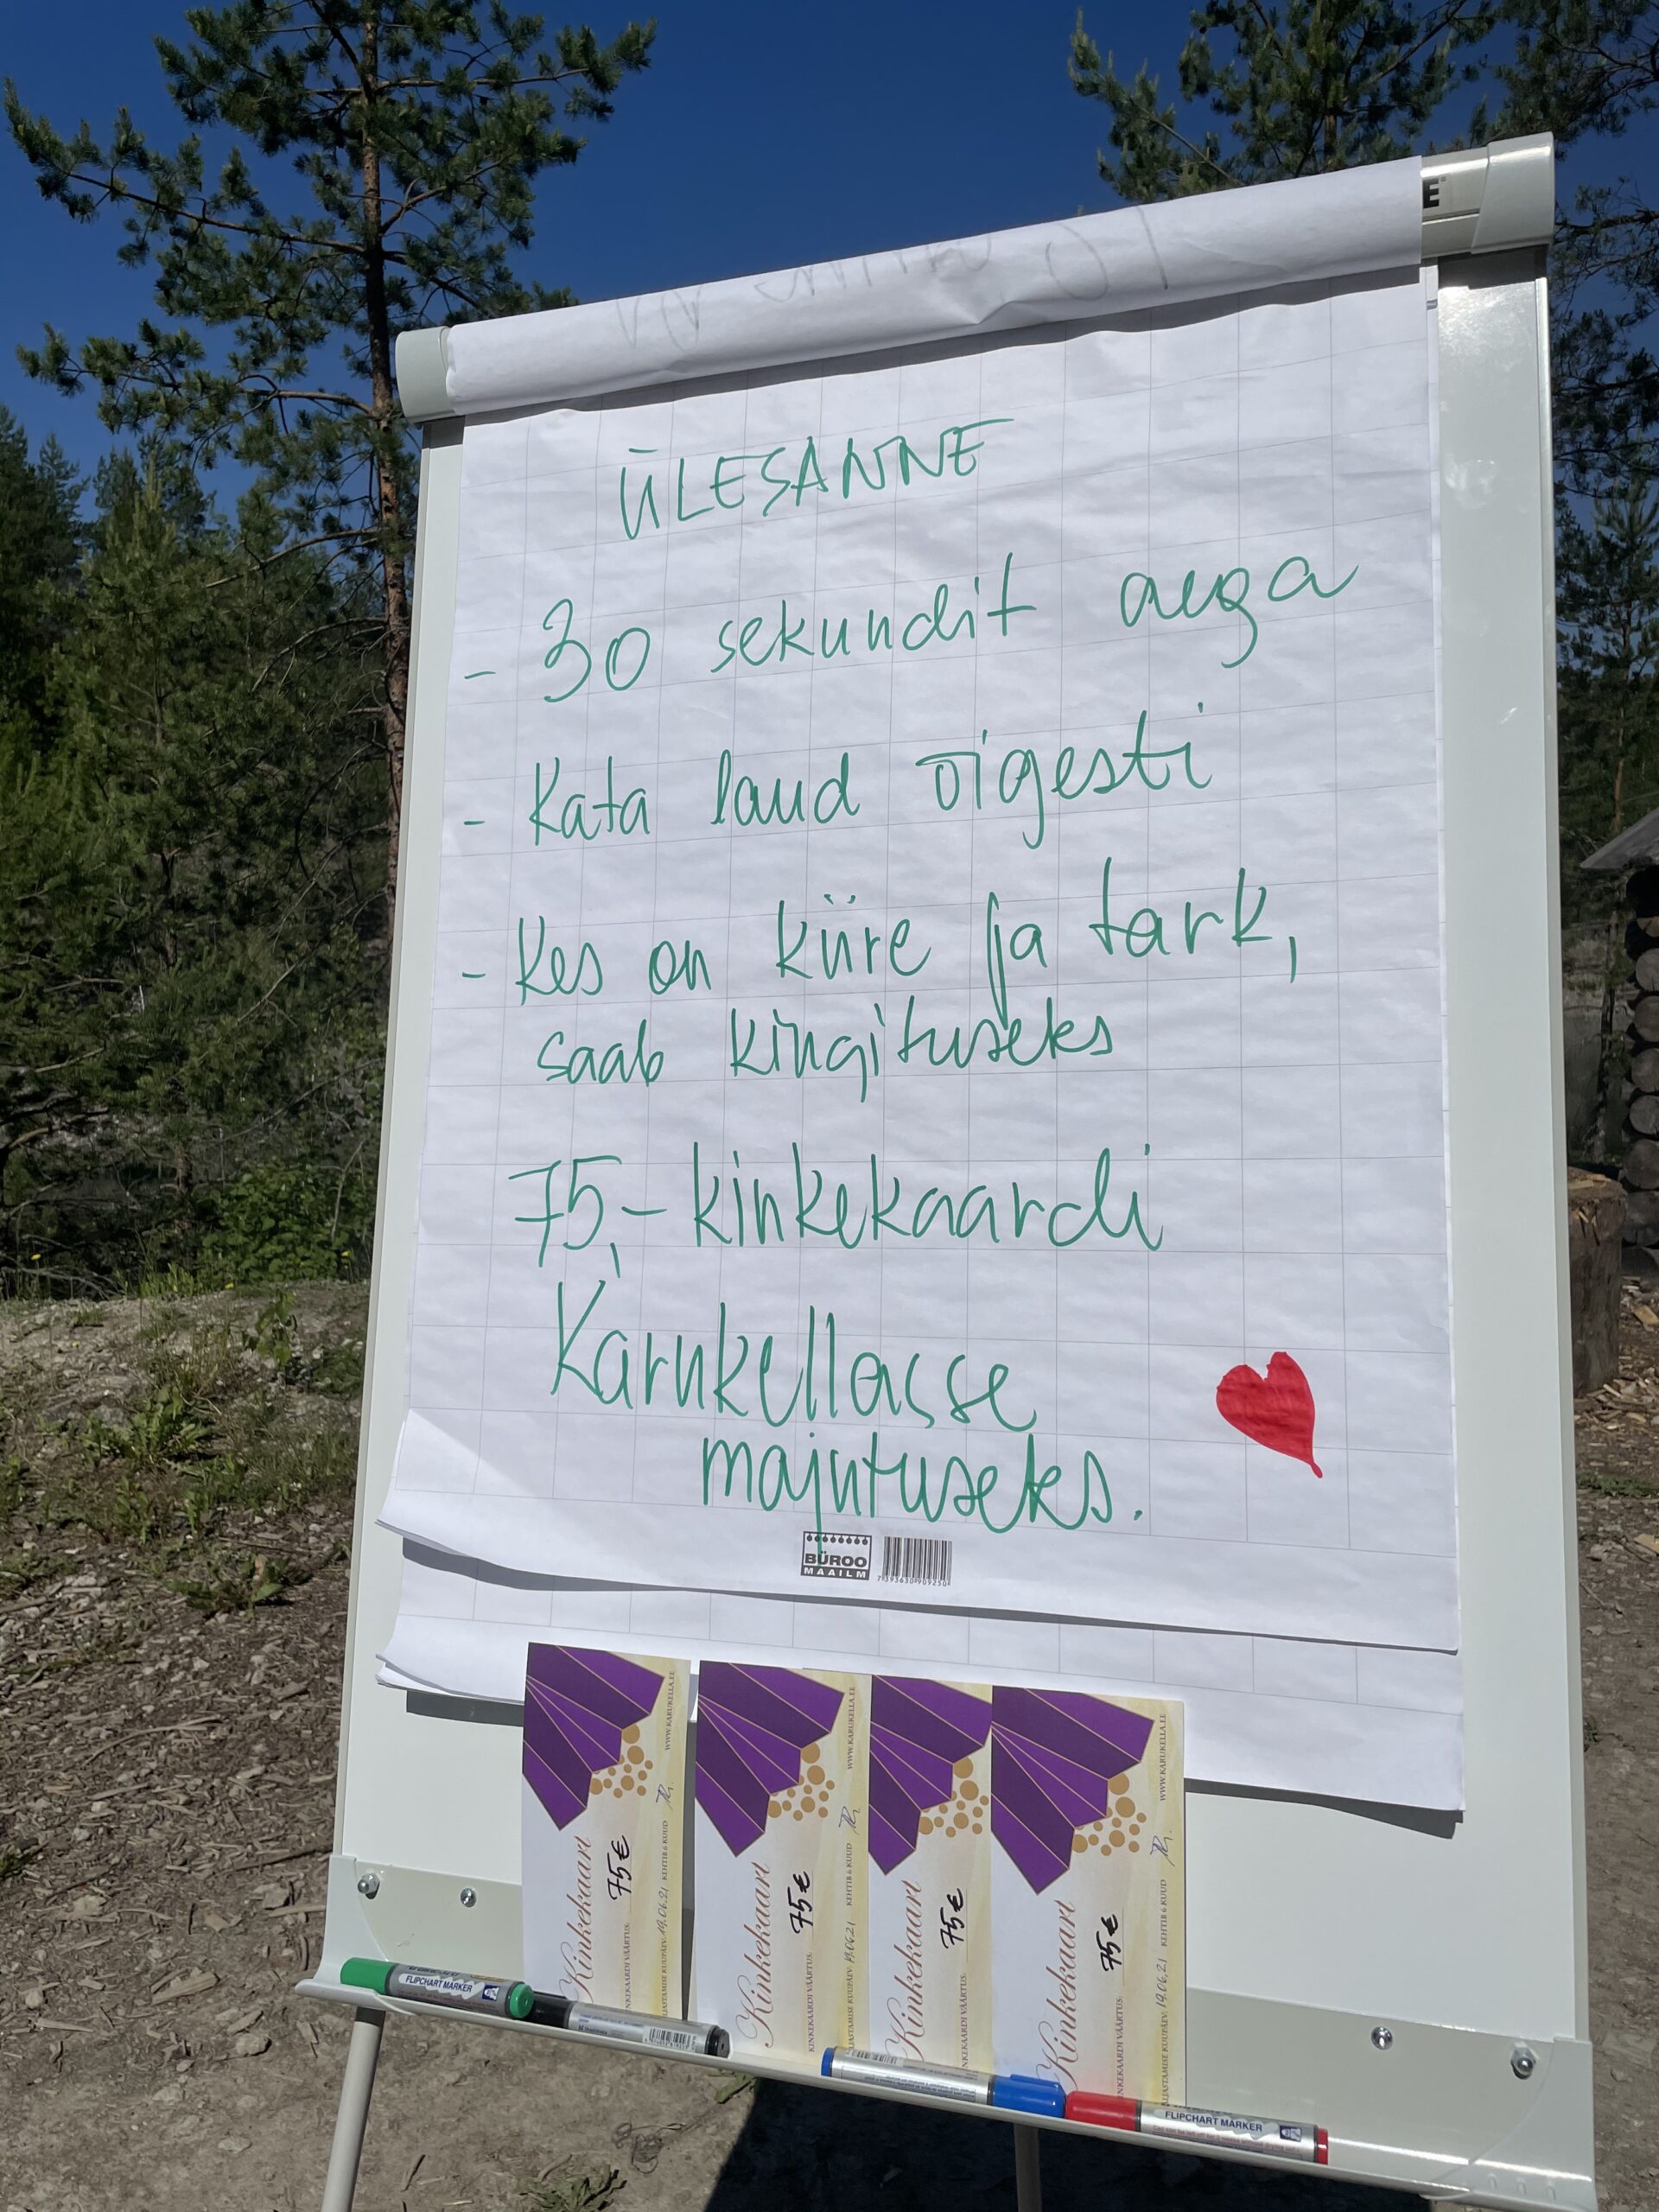 E
ÜLESANNE
- 30 sekundit aega
- Kata laud õigesti
- Kes on kiire ja tark,
saab kingituseks
75,- kinkekaardi
Karukellasse
majutuseks.
BÜROO
MAAILM
7393630909250
Kinkekaart
75€
KINKEKAARDI VÄÄRTUS:
19.06.21 KEHTIB 6 KUUD
WWW.KARUKELLA.EE
Kinkekaart
75€
KINKEKAARDI VÄÄRTUS:
VÄLJASTAMISE KUUPÄEV: 19.06.21 KEHTIB 6 KUUD
WWW.KARUKELLA.EE
Kinkekaart
75€
KINKEKAARDI VÄÄRTUS:
Kinkekaart
75€
KINKEKAARDI VÄÄRTUS:
VÄLJASTAMISE KUUPÄEV: 19.06.21 KEHTIB 6 KUUD
WWW.KARUKELLA.EE
FLIPCHART MARKER
FLIPCHART MARKER